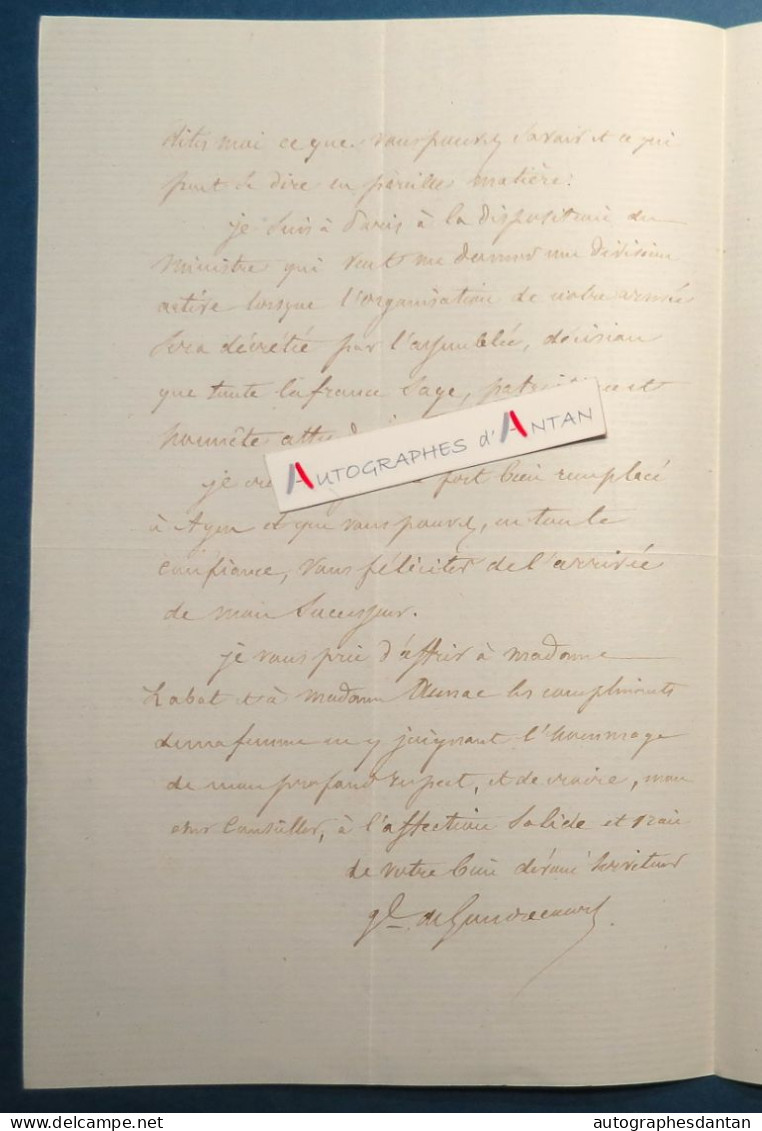 dites moi ce que vous pouvez savoir et ce qui
peut se dire en pareille matière.
je suis à Paris à la disposition du
Ministre qui veut me donner une division
active lorsque l'organisation de notre armée
sera décrétée par l'assemblée, décision
que toute la france sage, et
honnête
AUTOGRAPHES d'ANTAN
je fort bien remplacé
à Agen et que vous pouvez, en toute
confiance, vous féliciter de l'arrivée
de mon successeur.
je vous prie d'offrir à madame
Labat et à madame Aunac les compliments
de ma femme en y joignant l'hommage
de mon profond respect, et de croire, mon
cher Conseiller, à l'affection solide et vraie
de votre bien dévoué serviteur
gal de Gondrecourt
autographesdantan